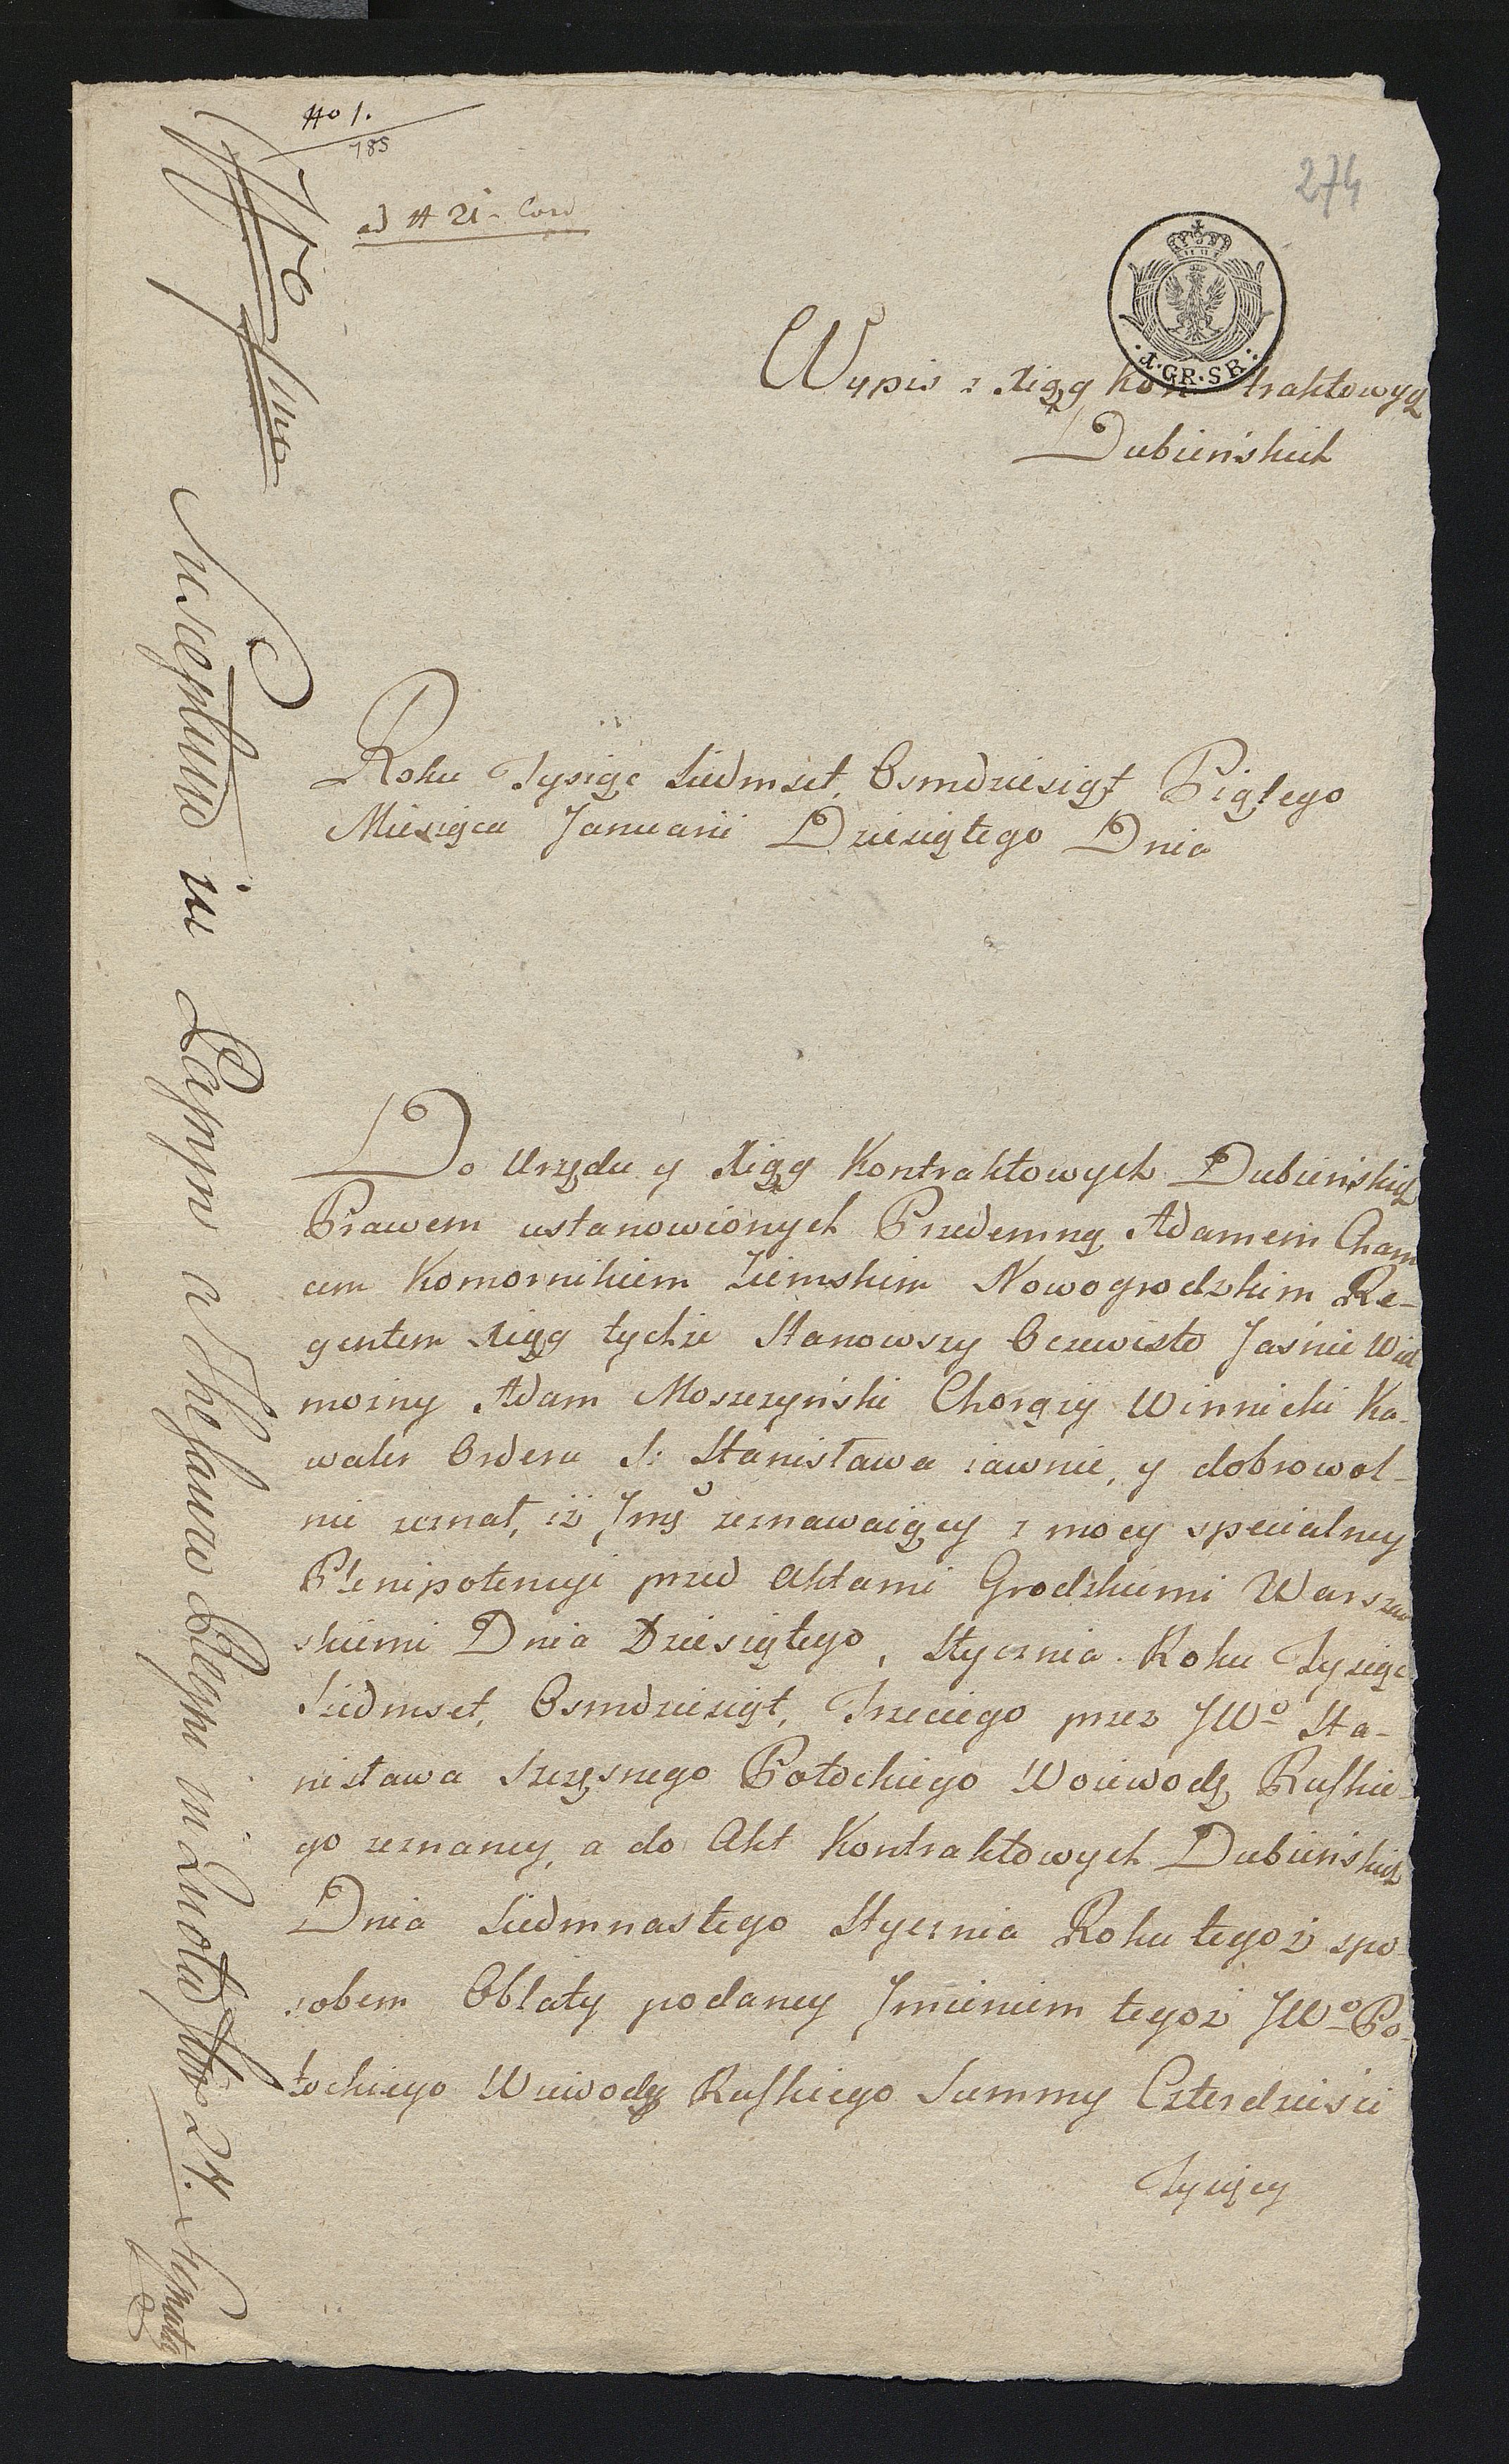 No 1.
785
ad # 21 - Cond
274
1. GR. SR:
Wypis z Xiąg Kontraktowych
Dubieńskich
Roku Tysiąc Siedmset, Osmdziesiąt Piątego
Miesiąca Januarii Dziesiątego Dnia
Do Urzędu y Xiąg Kontraktowych Dubieńskich
Prawem ustanowionych Przedemną Adamem Cham
cem Komornikiem Ziemskim Nowogrodzkim Re-
gentem Xiąg tychże Stanowszy Oczewisto Jaśnie Wiel
możny Adam Moszczyński Chorąży Winnicki Ka-
waler Orderu S: Stanisława iawnie, y dobrowol-
nie zeznał, iż Jmć zeznawaiący z mocy specialney
Plenipotencyi przed Aktami Grodzkiemi Warszaw
skiemi Dnia Dziesiątego, Stycznia Roku Tysiąc
Siedmset, Osmdziesiąt, Trzeciego przez JWo Sta-
nisława Szczęsnego Potockiego Woiewodę Ruskie-
go zeznaney, a do Akt Kontraktowych Dubieńskich
Dnia Siedmnastego Stycznia Roku tegoż spo-
sobem Oblaty podaney Jmieniem tegoż JWo Po-
tockiego Woiewody Ruskiego Summy Czterdzieści
Tysięcy
Susceptum in Capsam a Thesauro Regni in quota 24.